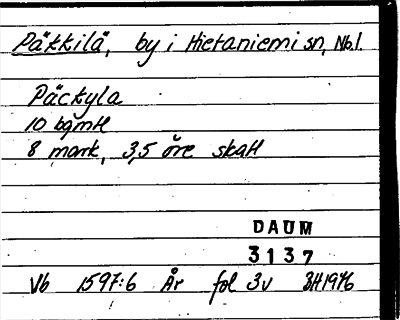 Päkkilä, by i Hietaniemi sn, Nb.l.
Päckyla
10 bgmtl
8 mark, 3,5 öre skatt
DAUM
3137
Vb 1597:6 År fol 3v BH1976